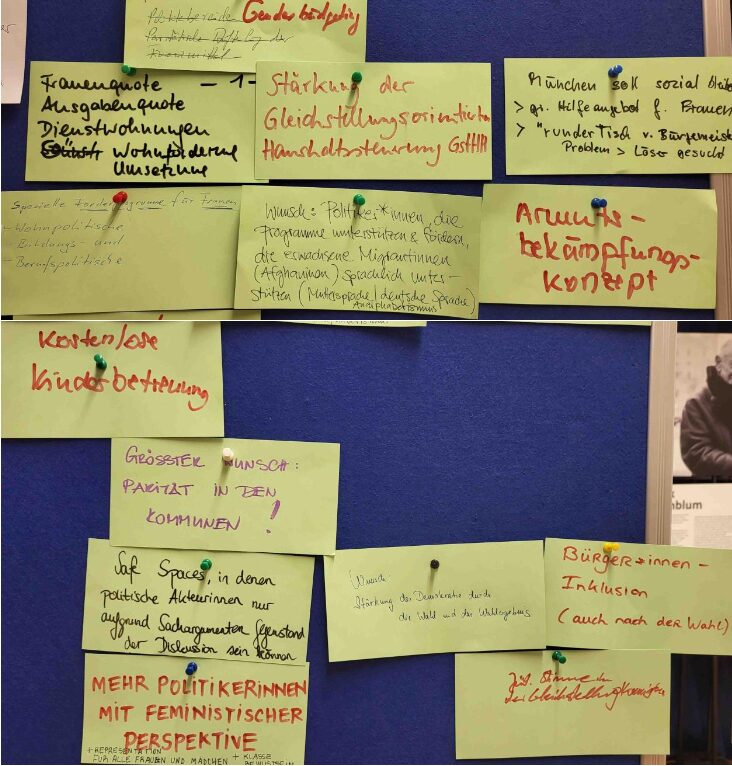 Genderbudgeting
Frauenquote - 1-
Ausgabenquote
Dienstwohnungen
Wohnförderung
Umsetzung
Stärkung der
Gleichstellungsorientierten
Haushaltssteuerung GstHH
München soll sozial bleibe
> gr. Hilfeangebot f. Frauen
> "runder Tisch v. Bürgermeist
Problem > Löser gesucht
Spezielle Förderprogramme für Frauen
- Wohnpolitische
- Bildungs- und
- Berufspolitische
Wunsch: Politiker*innen, die
Programme unterstützen & fördern,
die erwachsene Migrantinnen
(Afghaninnen) sprachlich unter-
stützen (Muttersprache/deutsche Sprache)
Analphabetismus
Armuts-
bekämpfungs-
konzept
Kostenlose
Kinderbetreuung
GRÖSSTER WUNSCH:
PARITÄT IN DEN
KOMMUNEN!
Safe Spaces, in denen
politische Akteurinnen nur
aufgrund Sachargumenten Gegenstand
der Diskussion sein können
Wunsch:
Stärkung der Demokratie durch
die Wahl und das Wahlergebnis
Bürger*innen-
Inklusion
(auch nach der Wahl)
MEHR POLITIKERINNEN
MIT FEMINISTISCHER
PERSPEKTIVE
+ REPRESENTATION
FÜR ALLE FRAUEN UND MÄDCHEN + KLASSE
BEWUSTSEIN
Stimme in
der Gleichstellungskommission
nblum